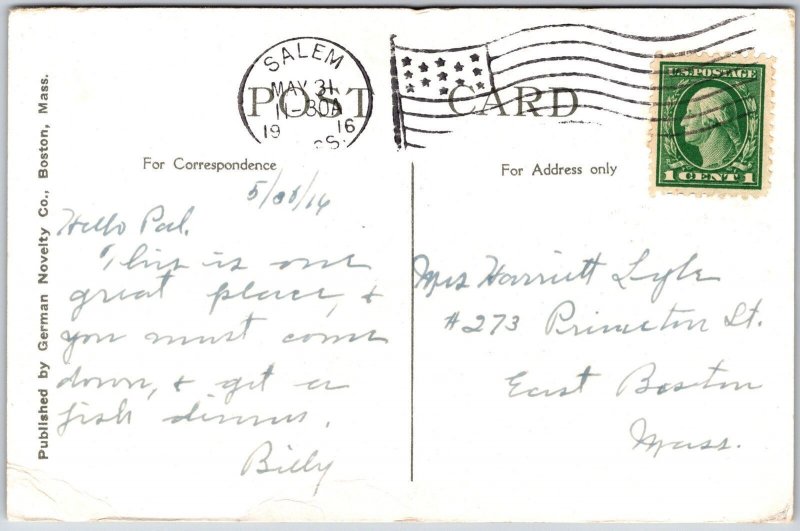 SALEM
MAY 31
11-30A
19 16
SS.
POST CARD
U.S. POSTAGE
1 CENT 1
For Correspondence
For Address only
Published by German Novelty Co., Boston, Mass.
5/30/16
Hello Pal.
This is one
great place, &
you must come
down, & get a
fish dinner.
Billy
Mrs Harriett Lyle
#273 Princeton St.
East Boston
Mass.